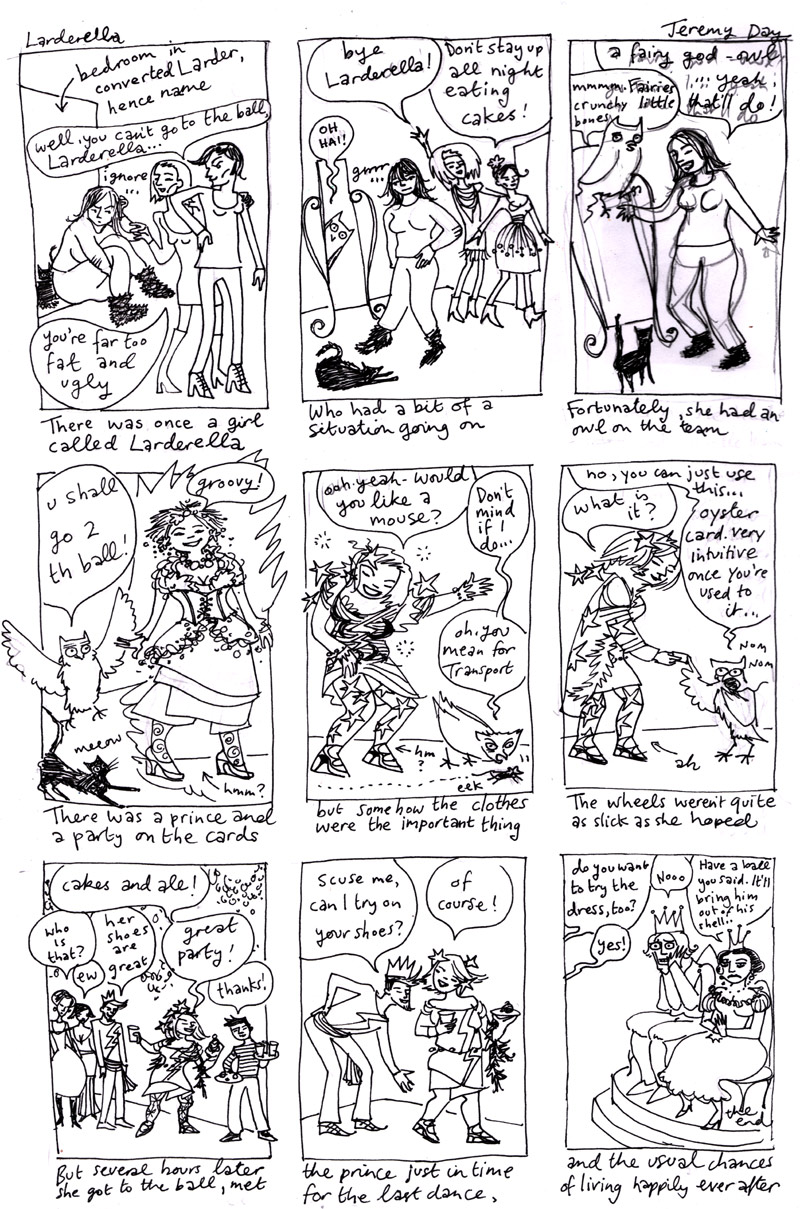 Larderella
Jeremy Day
bedroom in
converted Larder,
hence name
well, you can't go to the ball,
Larderella...
ignore
...
you're far too
fat and
ugly
There was once a girl
called Larderella
bye
Larderella!
Don't stay up
all night
eating
cakes!
OH
HAI!
grrr
...
Who had a bit of a
situation going on
a fairy god-owl
... yeah,
that'll do!
mmmm. Fairies
crunchy little
bones
Fortunately, she had an
owl on the team
u shall
go 2
th ball!
groovy!
meeow
hmm?
There was a prince and
a party on the cards
ooh. yeah - would
you like a
mouse?
Don't
mind
if I
do...
oh, you
mean for
Transport
hm
?
eek
but somehow the clothes
were the important thing
no, you can just use
this...
oyster
card. very
intuitive
once you're
used to
it...
what is
it?
NOM
NOM
ah
The wheels weren't quite
as slick as she hoped
cakes and ale!
who
is
that?
ew
her
shoes
are
great
great
party!
thanks!
But several hours later
she got to the ball, met
Scuse me,
can I try on
your shoes?
of
course!
the prince just in time
for the last dance,
do you want
to try the
dress, too?
yes!
Nooo
Have a ball
you said. It'll
bring him
out of his
shell...
the
end
and the usual chances
of living happily ever after